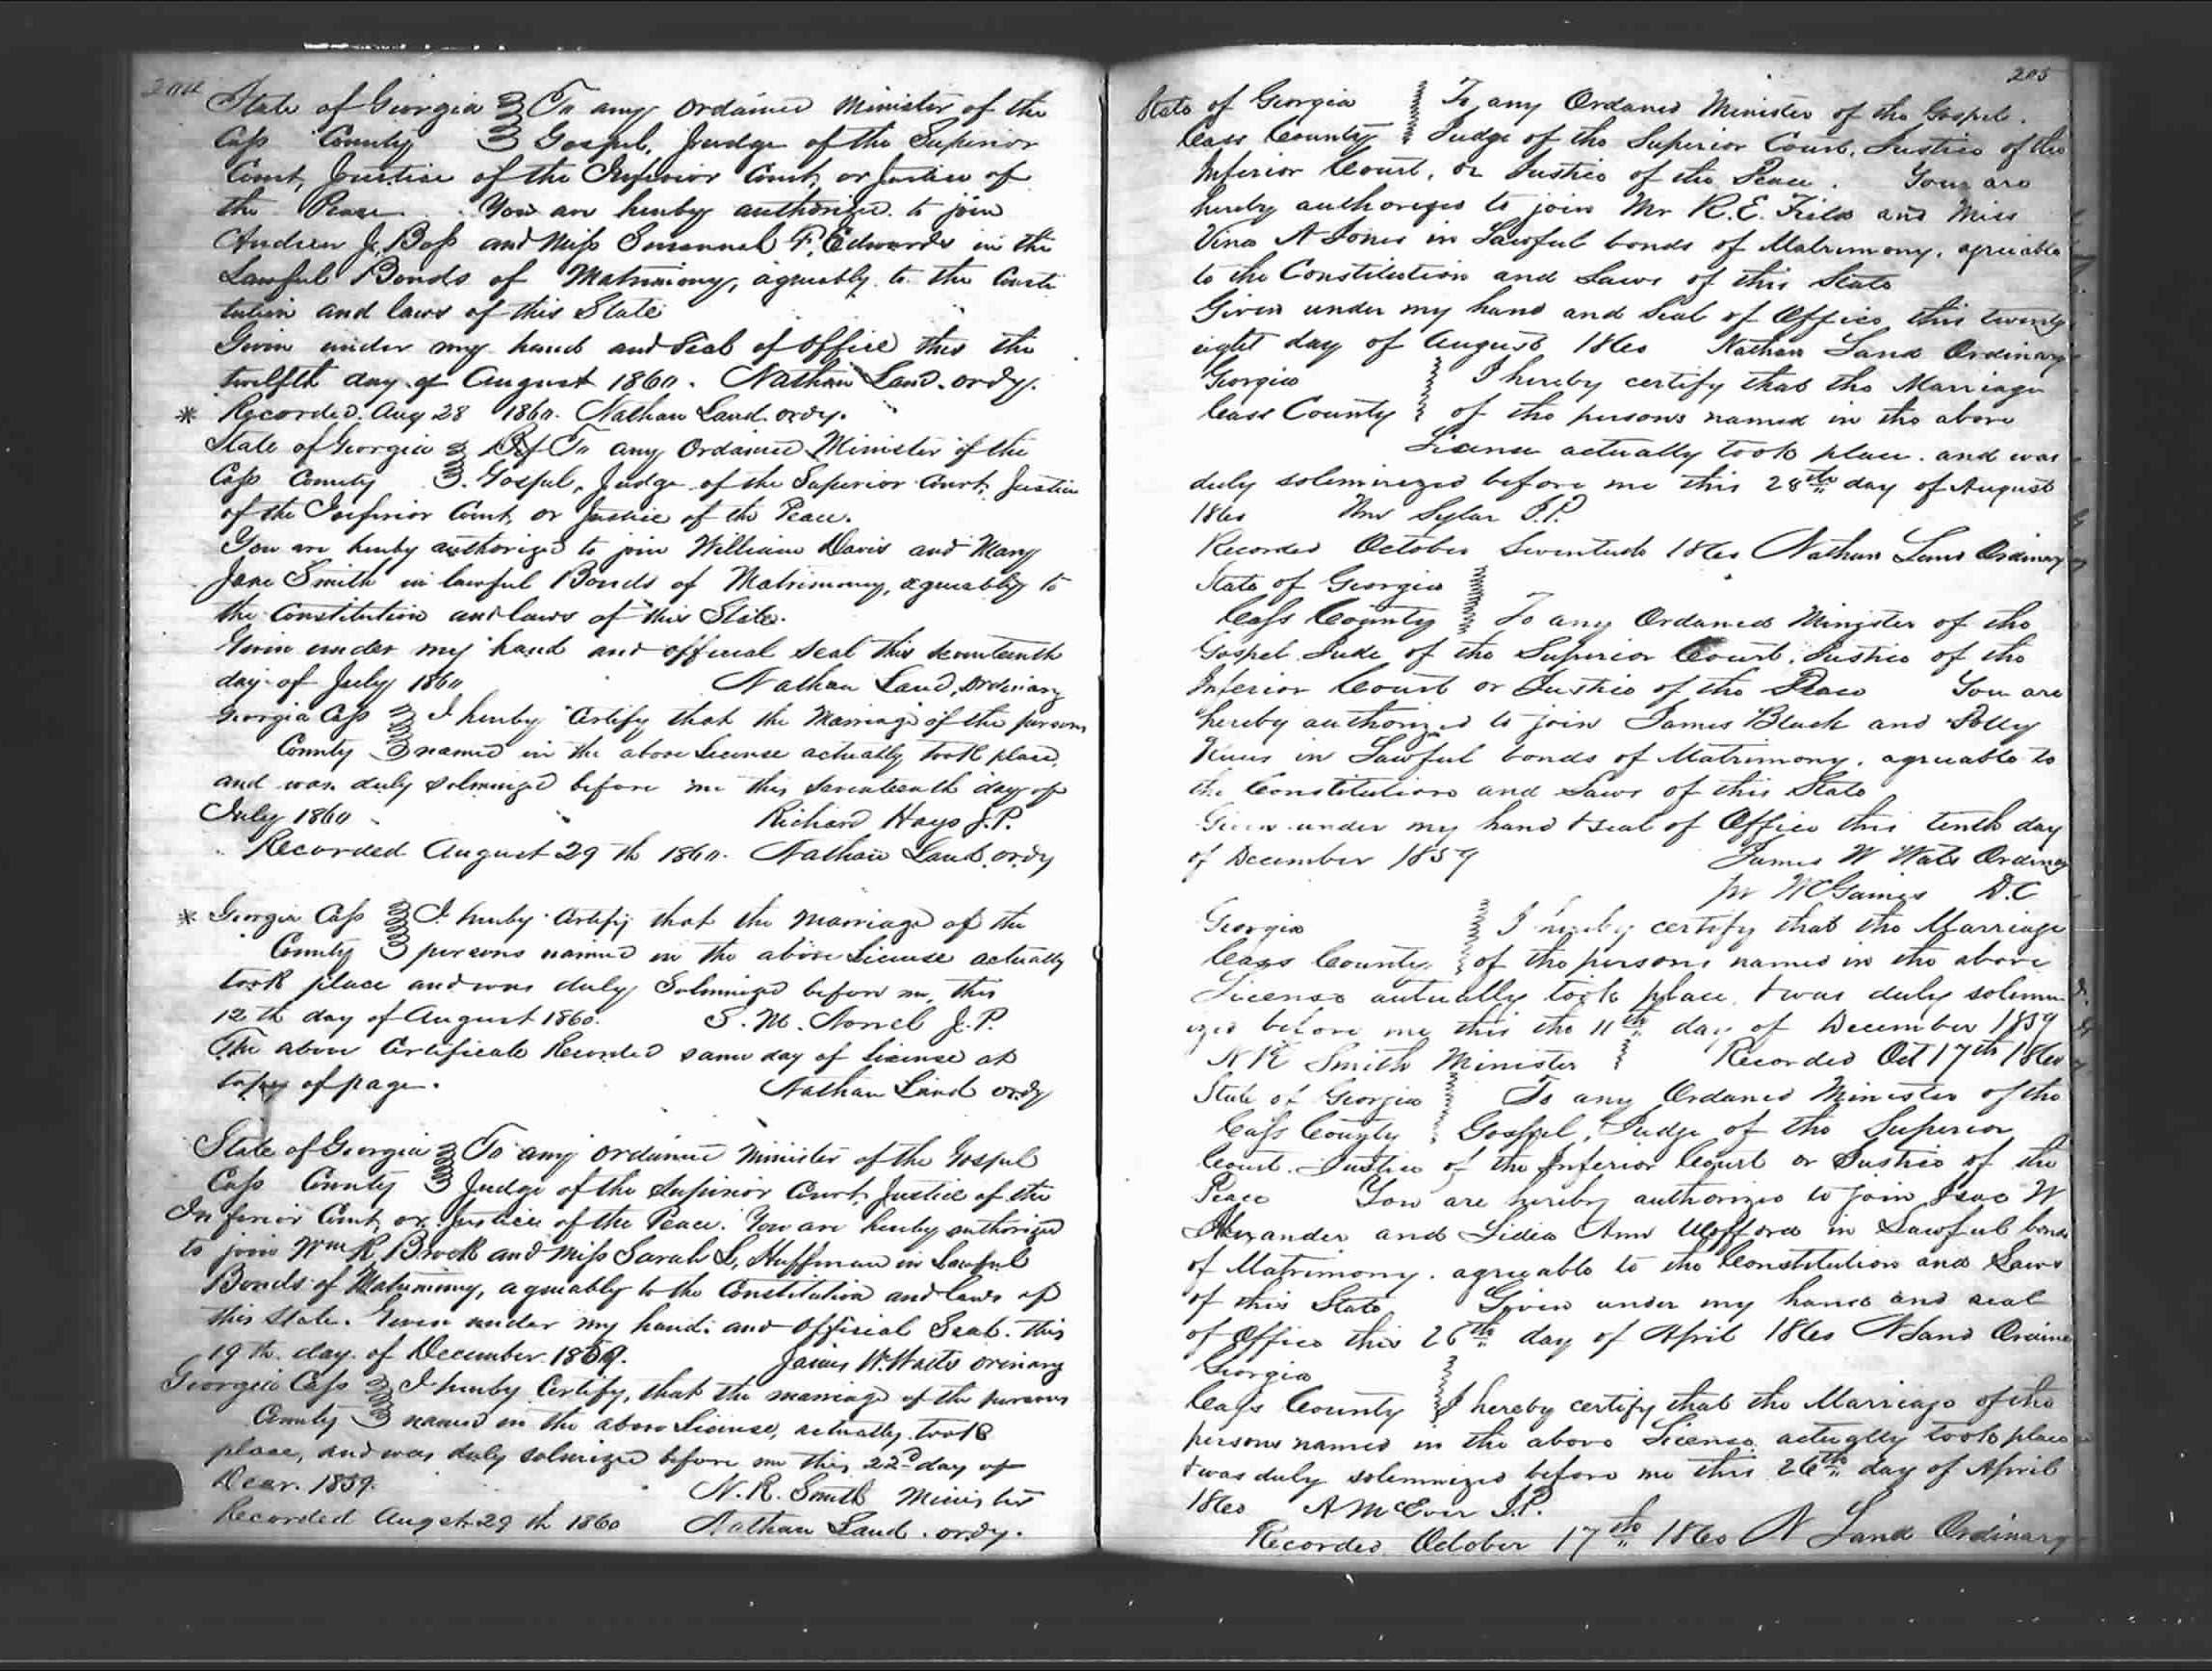 204
State of Georgia To any ordained Minister of the
Cass County Gospel, Judge of the Superior
Court, Justice of the Inferior Court, or Justice of
the Peace. You are hereby authorized to join
Andrew J. Bass and Miss Susannah F. Edwards in the
Lawful Bonds of Matrimony, agreeably to the Consti
tution and laws of this State
Given under my hand and Seal of office this the
twelfth day of August 1860. Nathan Land. ordy.
* Recorded. Aug 28 1860. Nathan Land ordy.
State of Georgia To any Ordained Minister of the
Cass County Gospel, Judge of the Superior Court, Justice
of the Inferior Court, or Justice of the Peace.
You are hereby authorized to join William Davis and Mary
Jane Smith in lawful Bonds of Matrimony, agreeably to
the Constitution and laws of this State.
Given under my hand and official seal this seventeenth
day of July 1860 Nathan Land, Ordinary
Georgia Cass I hereby Certify that the Marriage of the persons
County named in the above License actually took place,
and was duly solmnized before me this seventeenth day of
July 1860 Richard Hays J.P.
Recorded August 29th 1860. Nathan Land. ordy
* Georgia Cass I hereby Certify that the marriage of the
County persons named in the above License actually
took place and was duly Solmnized before me, this
12th day of August 1860. S. M. J.P.
The above Certificate Recorded same day of License at
top of page. Nathan Land ordy
State of Georgia To any ordained minister of the Gospel
Cass County Judge of the Superior Court, Justice of the
Inferior Court, or Justice of the Peace. You are hereby authorized
to join Wm R. Brock and Miss Sarah L. Huffman in Lawful
Bonds of Matrimony, agreeably to the Constitution and laws of
this State. Given under my hand and official Seal. this
19th day of December 1859. James W. Watts orinary
Georgia Cass I hereby Certify, that the marriage of the persons
County named in the above License, actually took
place, and was duly solmized before me this 22d day of
Decr. 1859. N. R. Smith Minister
Recorded August 29th 1860 Nathan Land. ordy.
205
State of Georgia To any Ordaned Minister of the Gospel.
Cass County Judge of the Superior Court, Justice of the
Inferior Court, or Justice of the Peace. You are
hereby authorized to join Mr R. E. Field and Miss
Vina A Jones in Lawful bonds of Matrimony, agreeable
to the Constitution and Laws of this State
Given under my hand and Seal of Office this twenty
eight day of August 1860 Nathan Land Ordinary
Georgia I hereby certify that the Marriage
Cass County of the persons named in the above
License actually took place. and was
duly soleminized before me this 28th day of August
1860 Wm Sylar J.P.
Recorded October Seventeeth 1860 Nathan Land Ordinary
State of Georgia
Cass County To any Ordaned Minister of the
Gospel Jude of the Superior Court, Justice of the
Inferior Court or Justice of the Peace You are
hereby authorized to join James Black and Polly
in Lawful bonds of Matrimony. agreeable to
the Constitution and Laws of this State
Given under my hand & seal of Office this tenth day
of December 1859 James W Watts Ordinary
pr D.C
Georgia I hereby certify that the Marriage
Cass County of the persons named in the above
License actually took place, & was duly solemn
ized before me this the 11th day of December 1859
N R Smith Minister Recorded Oct 17th 1860
State of Georgia To any Ordaned Minister of the
Cass County Gospel, Judge of the Superior
Court. Justice of the Inferior Court or Justice of the
Peace You are hereby authorized to join Isac W
Alexander and Lidia Ann Wofford in Lawful bonds
of Matrimony. agreeable to the Constitution and Laws
of this State Given under my hand and seal
of Office this 26th day of April 1860 N Land Ordinary
Georgia
Cass County I hereby certify that the Marriage of the
persons named in the above License actually took place
& was duly solemnized before me this 26th day of April
1860 A McEver J.P.
Recorded October 17th 1860 N Land Ordinary